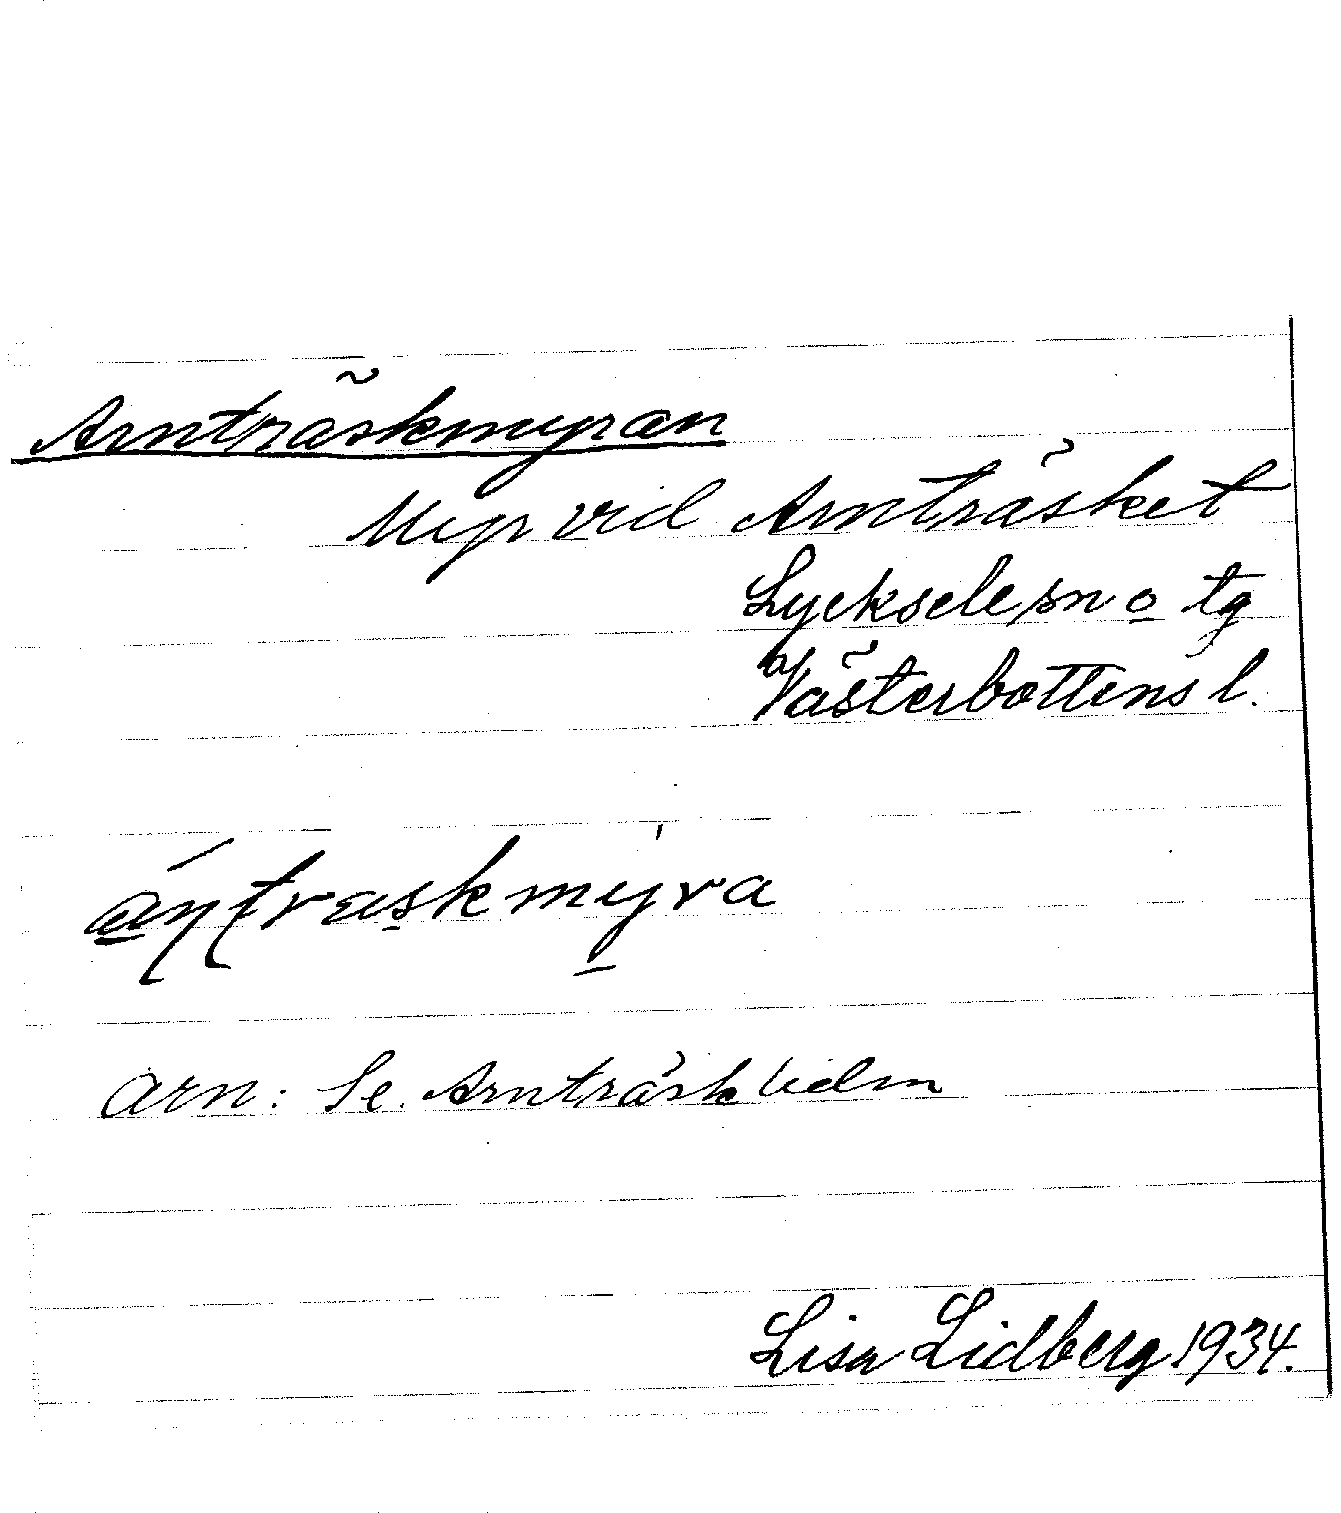 Arnträskmyran
Myr vid Arnträsket
Lycksele sn o tg
Västerbottens l.
a̲ɳʈraskmyra
Arn: Se. Arnträskliden
Lisa Lidberg 1934.